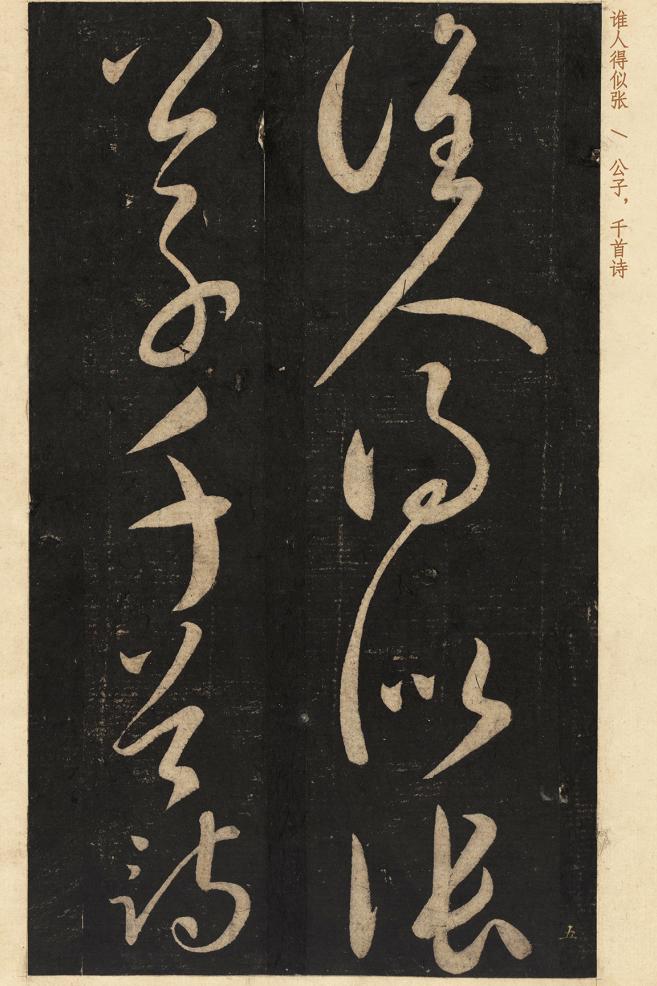 谁人得似张 \ 公子，千首诗
誰人得似張
公子千首詩
五